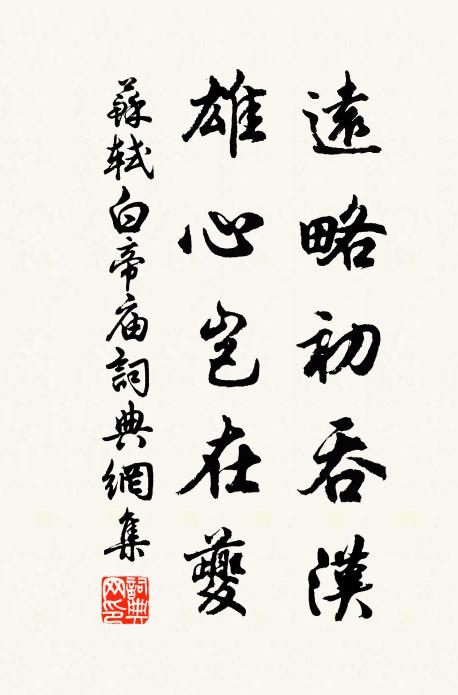 遠略初吞漢
雄心豈在夔
蘇軾白帝庙詞典網集
詞典网印